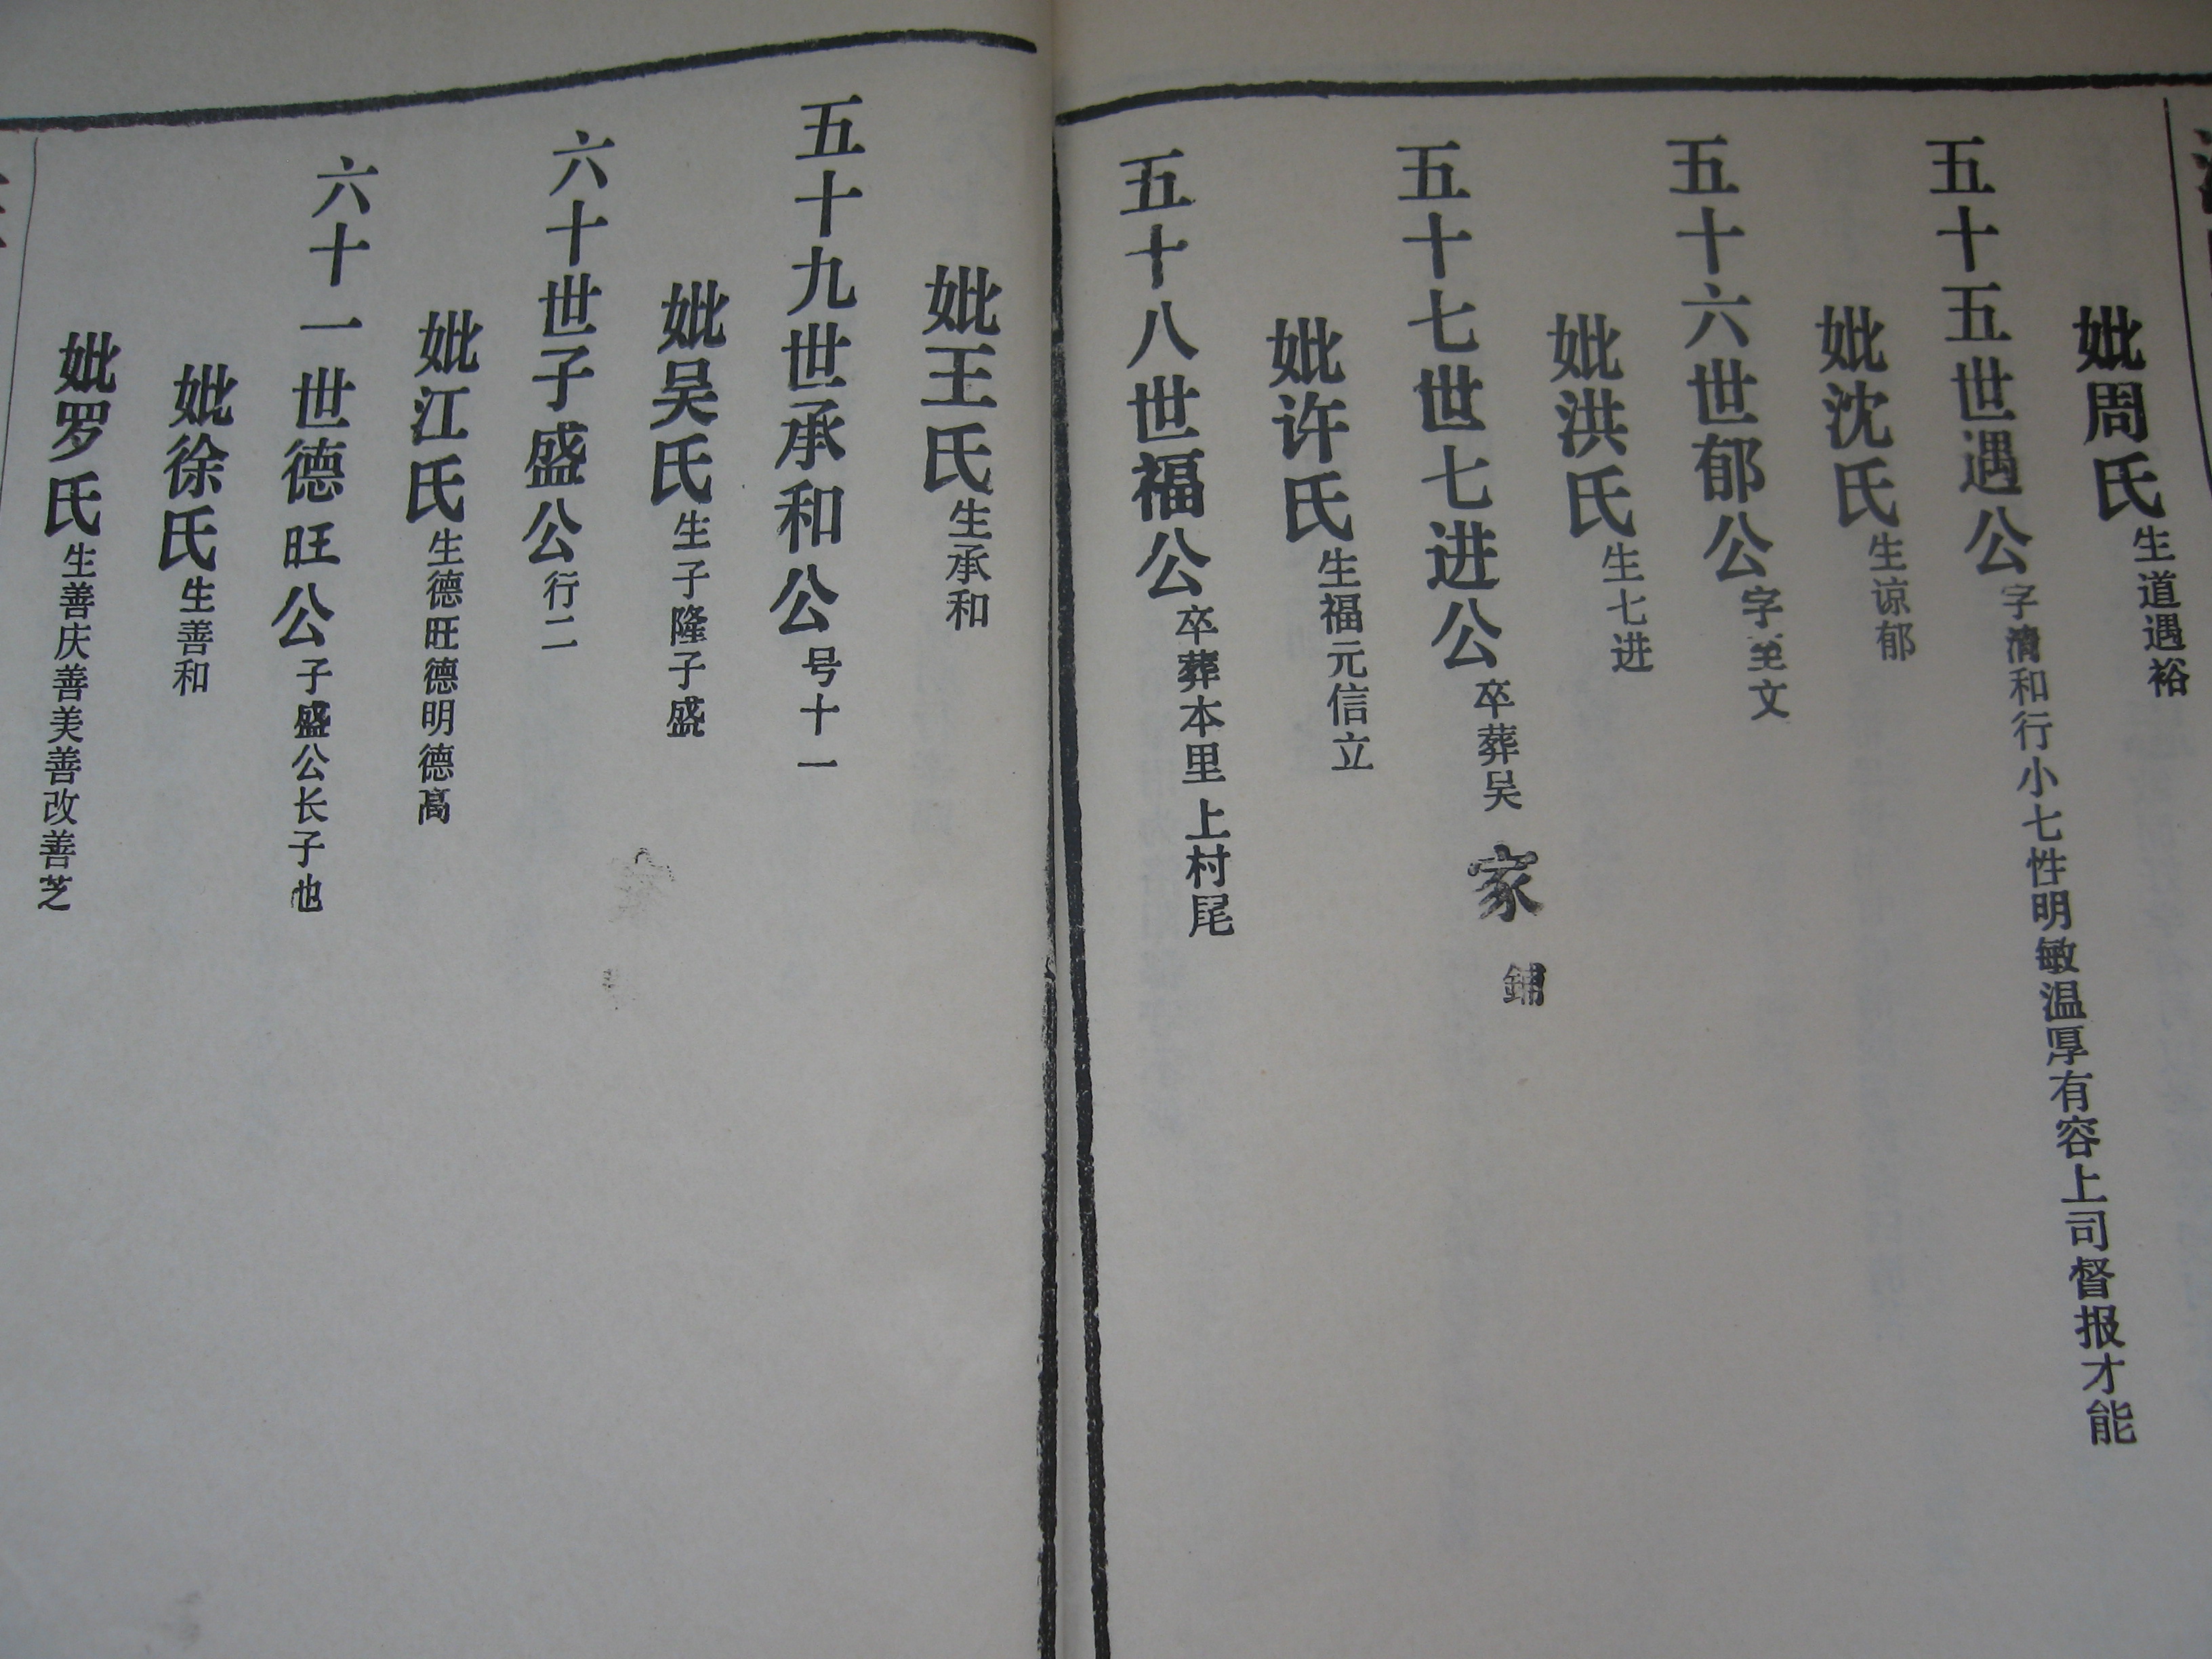 妣周氏生道遇裕
五十五世遇公字清和行小七性明敏温厚有容上司督报才能
妣沈氏生谅郁
五十六世郁公字文
妣洪氏生七进
五十七世七进公卒葬吴家铺
妣许氏生福元信立
五十八世福公卒葬本里上村尾
妣王氏生承和
五十九世承和公号十一
妣吴氏生子隆子盛
六十世子盛公行二
妣江氏生德旺德明德高
六十一世德旺公子盛公长子也
妣徐氏生善和
妣罗氏生善庆善美善改善芝